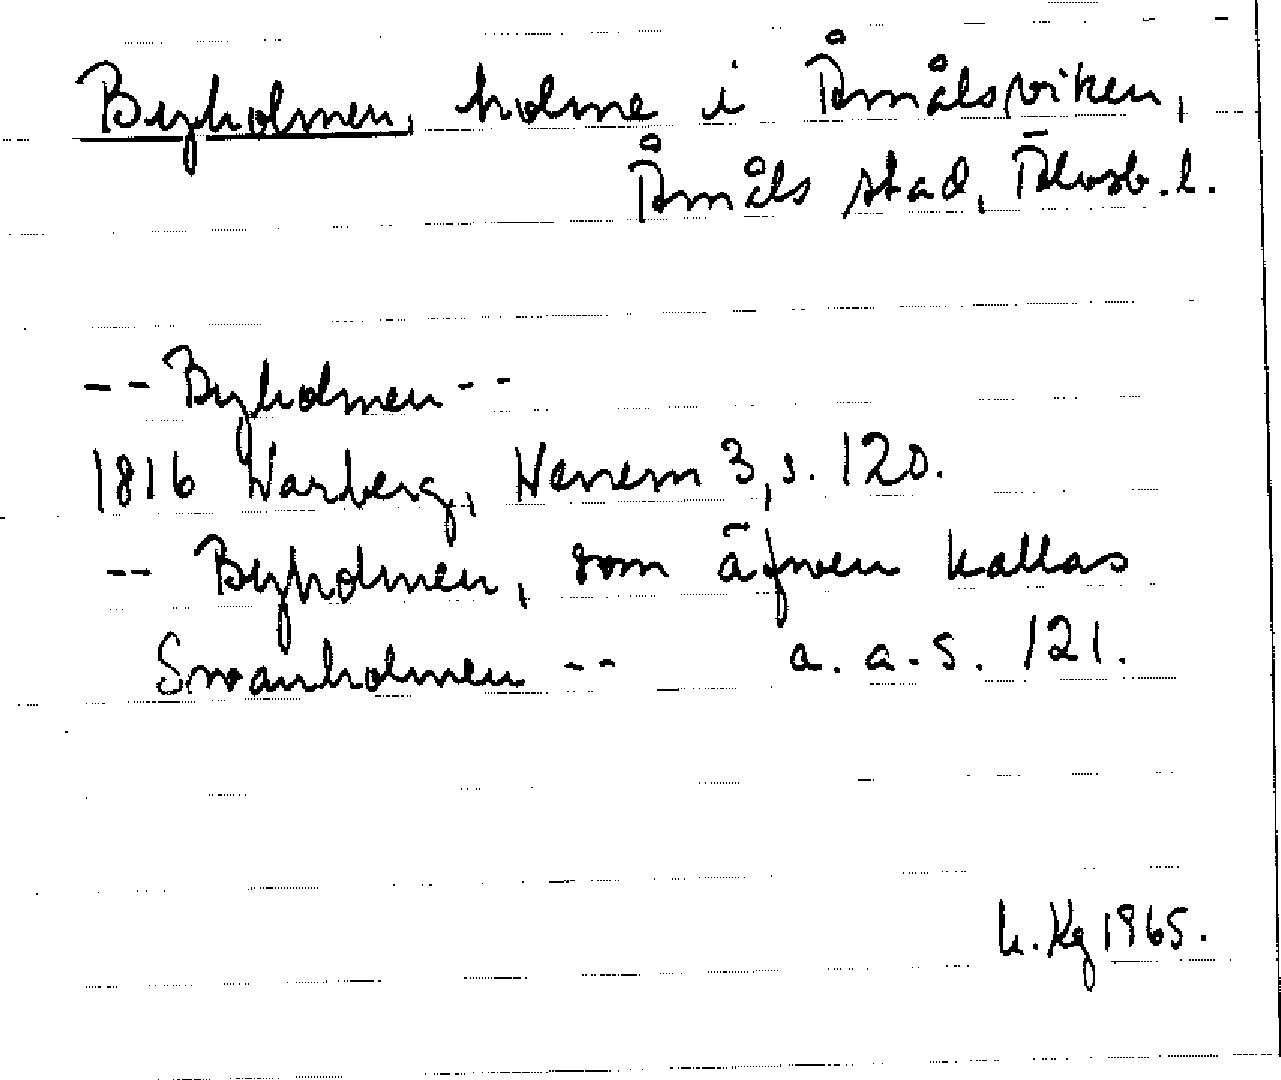 Byholmen, holme i Åmålsviken,
Åmåls stad, Älvsb. l.
-- Byholmen --
1816 Warberg, Wenern 3, s. 120.
-- Byholmen, som äfwen kallas
Swanholmen -- a. a. s. 121.
h. Kg 1965.